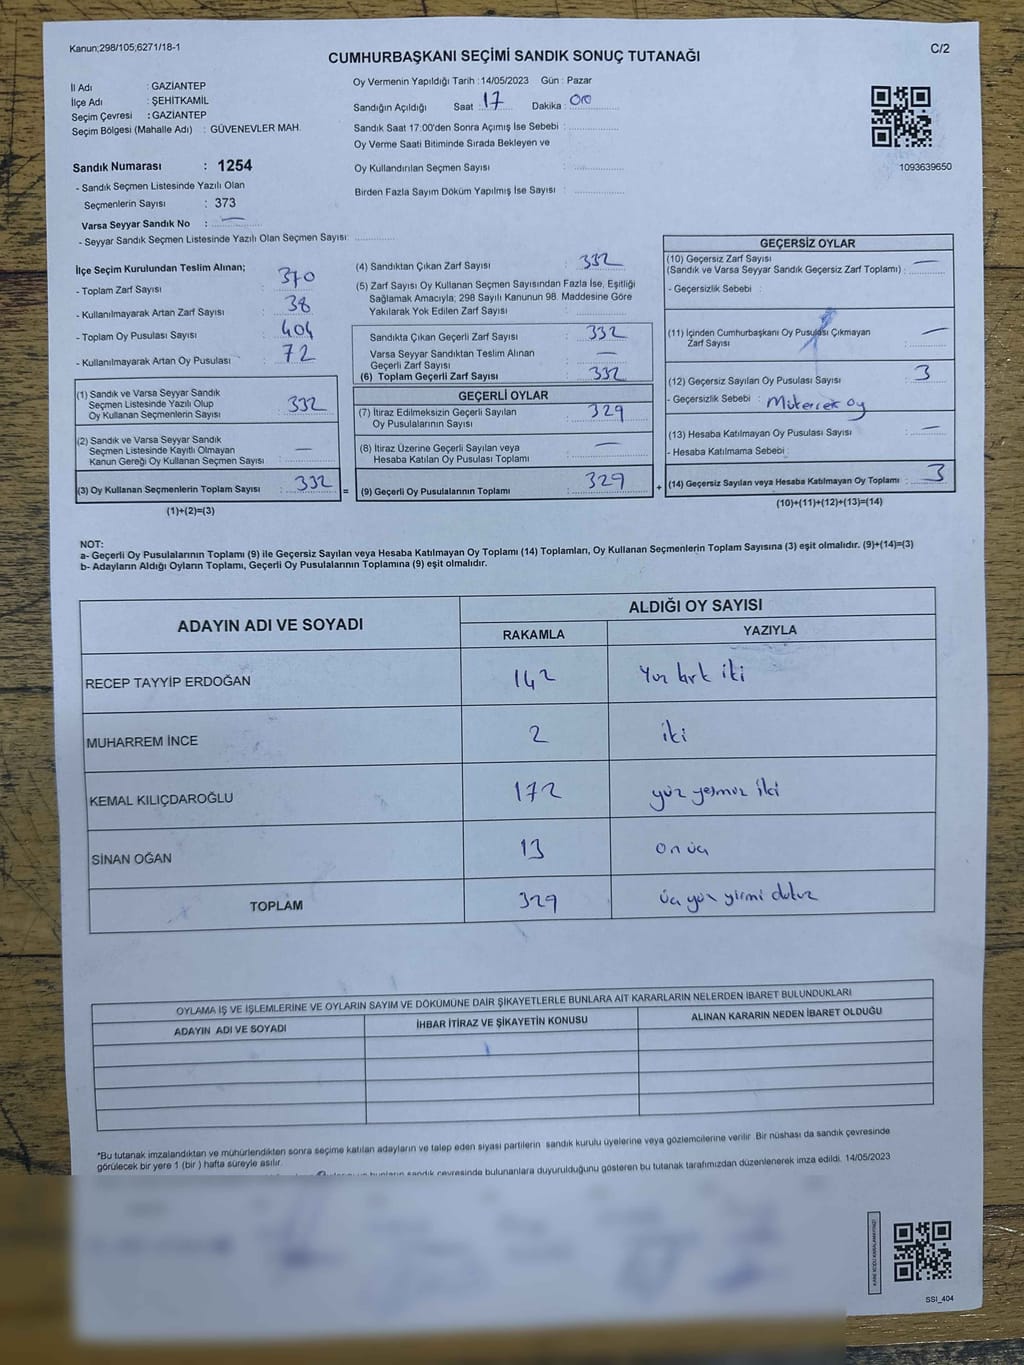 Kanun;298/105;6271/18-1
C/2
CUMHURBAŞKANI SEÇİMİ SANDIK SONUÇ TUTANAĞI
İl Adı : GAZİANTEP
İlçe Adı : ŞEHİTKAMİL
Seçim Çevresi : GAZİANTEP
Seçim Bölgesi (Mahalle Adı) : GÜVENEVLER MAH.
Sandık Numarası : 1254
- Sandık Seçmen Listesinde Yazılı Olan
Seçmenlerin Sayısı : 373
Varsa Seyyar Sandık No : —
- Seyyar Sandık Seçmen Listesinde Yazılı Olan Seçmen Sayısı:
Oy Vermenin Yapıldığı Tarih : 14/05/2023 Gün : Pazar
Sandığın Açıldığı Saat : 17 Dakika : 00
Sandık Saat 17:00'den Sonra Açımış İse Sebebi :
Oy Verme Saati Bitiminde Sırada Bekleyen ve
Oy Kullandırılan Seçmen Sayısı :
Birden Fazla Sayım Döküm Yapılmış İse Sayısı :
1093639650
İlçe Seçim Kurulundan Teslim Alınan;
- Toplam Zarf Sayısı : 370
- Kullanılmayarak Artan Zarf Sayısı : 38
- Toplam Oy Pusulası Sayısı : 404
- Kullanılmayarak Artan Oy Pusulası : 72
(1) Sandık ve Varsa Seyyar Sandık
Seçmen Listesinde Yazılı Olup
Oy Kullanan Seçmenlerin Sayısı : 332
(2) Sandık ve Varsa Seyyar Sandık
Seçmen Listesinde Kayıtlı Olmayan
Kanun Gereği Oy Kullanan Seçmen Sayısı : —
(3) Oy Kullanan Seçmenlerin Toplam Sayısı : 332 =
(1)+(2)=(3)
(4) Sandıktan Çıkan Zarf Sayısı : 332
(5) Zarf Sayısı Oy Kullanan Seçmen Sayısından Fazla İse, Eşitliği
Sağlamak Amacıyla; 298 Sayılı Kanunun 98. Maddesine Göre
Yakılarak Yok Edilen Zarf Sayısı :
Sandıkta Çıkan Geçerli Zarf Sayısı : 332
Varsa Seyyar Sandıktan Teslim Alınan
Geçerli Zarf Sayısı : —
(6) Toplam Geçerli Zarf Sayısı : 332
GEÇERLİ OYLAR
(7) İtiraz Edilmeksizin Geçerli Sayılan
Oy Pusulalarının Sayısı : 329
(8) İtiraz Üzerine Geçerli Sayılan veya
Hesaba Katılan Oy Pusulası Toplamı : —
(9) Geçerli Oy Pusulalarının Toplamı : 329 +
GEÇERSİZ OYLAR
(10) Geçersiz Zarf Sayısı
(Sandık ve Varsa Seyyar Sandık Geçersiz Zarf Toplamı) : —
- Geçersizlik Sebebi :
(11) İçinden Cumhurbaşkanı Oy Pusulası Çıkmayan
Zarf Sayısı : —
(12) Geçersiz Sayılan Oy Pusulası Sayısı : 3
- Geçersizlik Sebebi : Mükerrer oy
(13) Hesaba Katılmayan Oy Pusulası Sayısı : —
- Hesaba Katılmama Sebebi :
(14) Geçersiz Sayılan veya Hesaba Katılmayan Oy Toplamı : 3
(10)+(11)+(12)+(13)=(14)
NOT:
a- Geçerli Oy Pusulalarının Toplamı (9) ile Geçersiz Sayılan veya Hesaba Katılmayan Oy Toplamı (14) Toplamları, Oy Kullanan Seçmenlerin Toplam Sayısına (3) eşit olmalıdır. (9)+(14)=(3)
b- Adayların Aldığı Oyların Toplamı, Geçerli Oy Pusulalarının Toplamına (9) eşit olmalıdır.
ADAYIN ADI VE SOYADI ALDIĞI OY SAYISI
RAKAMLA YAZIYLA
RECEP TAYYİP ERDOĞAN 142 Yüz kırk iki
MUHARREM İNCE 2 iki
KEMAL KILIÇDAROĞLU 172 yüz yetmiş iki
SİNAN OĞAN 13 on üç
TOPLAM 329 üç yüz yirmi dokuz
OYLAMA İŞ VE İŞLEMLERİNE VE OYLARIN SAYIM VE DÖKÜMÜNE DAİR ŞİKAYETLERLE BUNLARA AİT KARARLARIN NELERDEN İBARET BULUNDUKLARI
ADAYIN ADI VE SOYADI İHBAR İTİRAZ VE ŞİKAYETİN KONUSU ALINAN KARARIN NEDEN İBARET OLDUĞU
*Bu tutanak imzalandıktan ve mühürlendikten sonra seçime katılan adayların ve talep eden siyasi partilerin sandık kurulu üyelerine veya gözlemcilerine verilir. Bir nüshası da sandık çevresinde
görülecek bir yere 1 (bir ) hafta süreyle asılır.
bunların sandık çevresinde bulunanlara duyurulduğunu gösteren bu tutanak tarafımızdan düzenlenerek imza edildi. 14/05/2023
KARE KODU KARALAMAYINIZ!
SSI_404